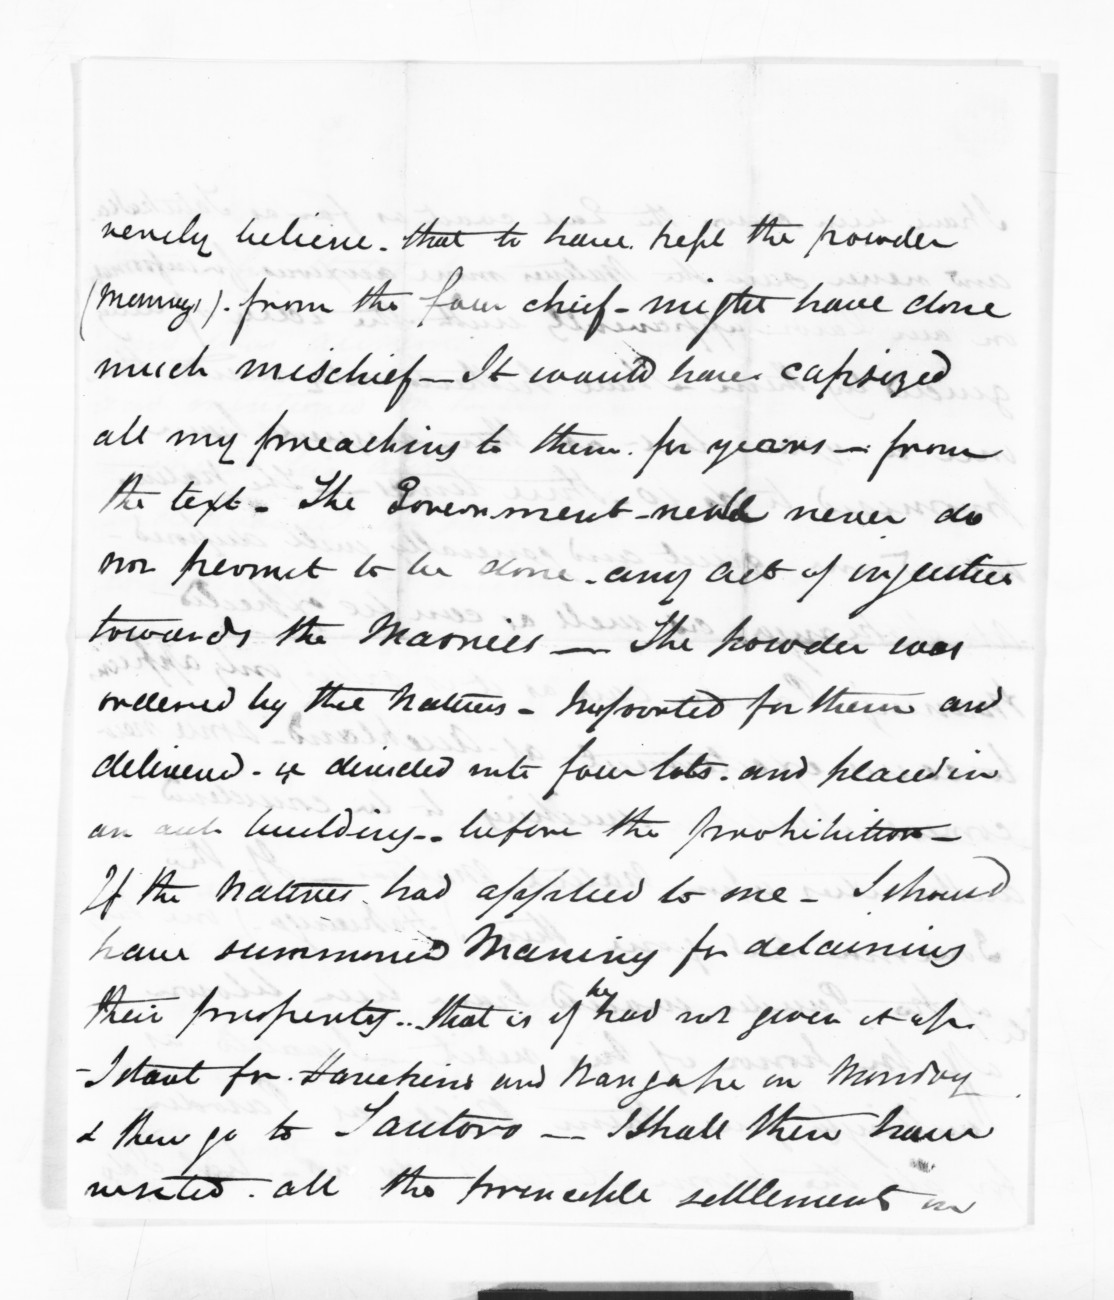 verily believe - that to have kept the powder
(Mannings). from the four chief - might have done
much mischief - It would have capsized
all my preaching to them. for years - from
the text - The Government - would never do
nor permit to be done - any act of injustice
towards the Maories - The powder was
ordered by the Natives - Imported for them and
delivered - & divided into four lots. and placed in
an out building - before the prohibition -
If the Natives had applied to me - I should
have summoned Maning for detaining
their property - that is if he had not given it up.
- I start for Hawkins and Mangapu on Monday
& then go to - I shall then have
visited. all the principle settlements in